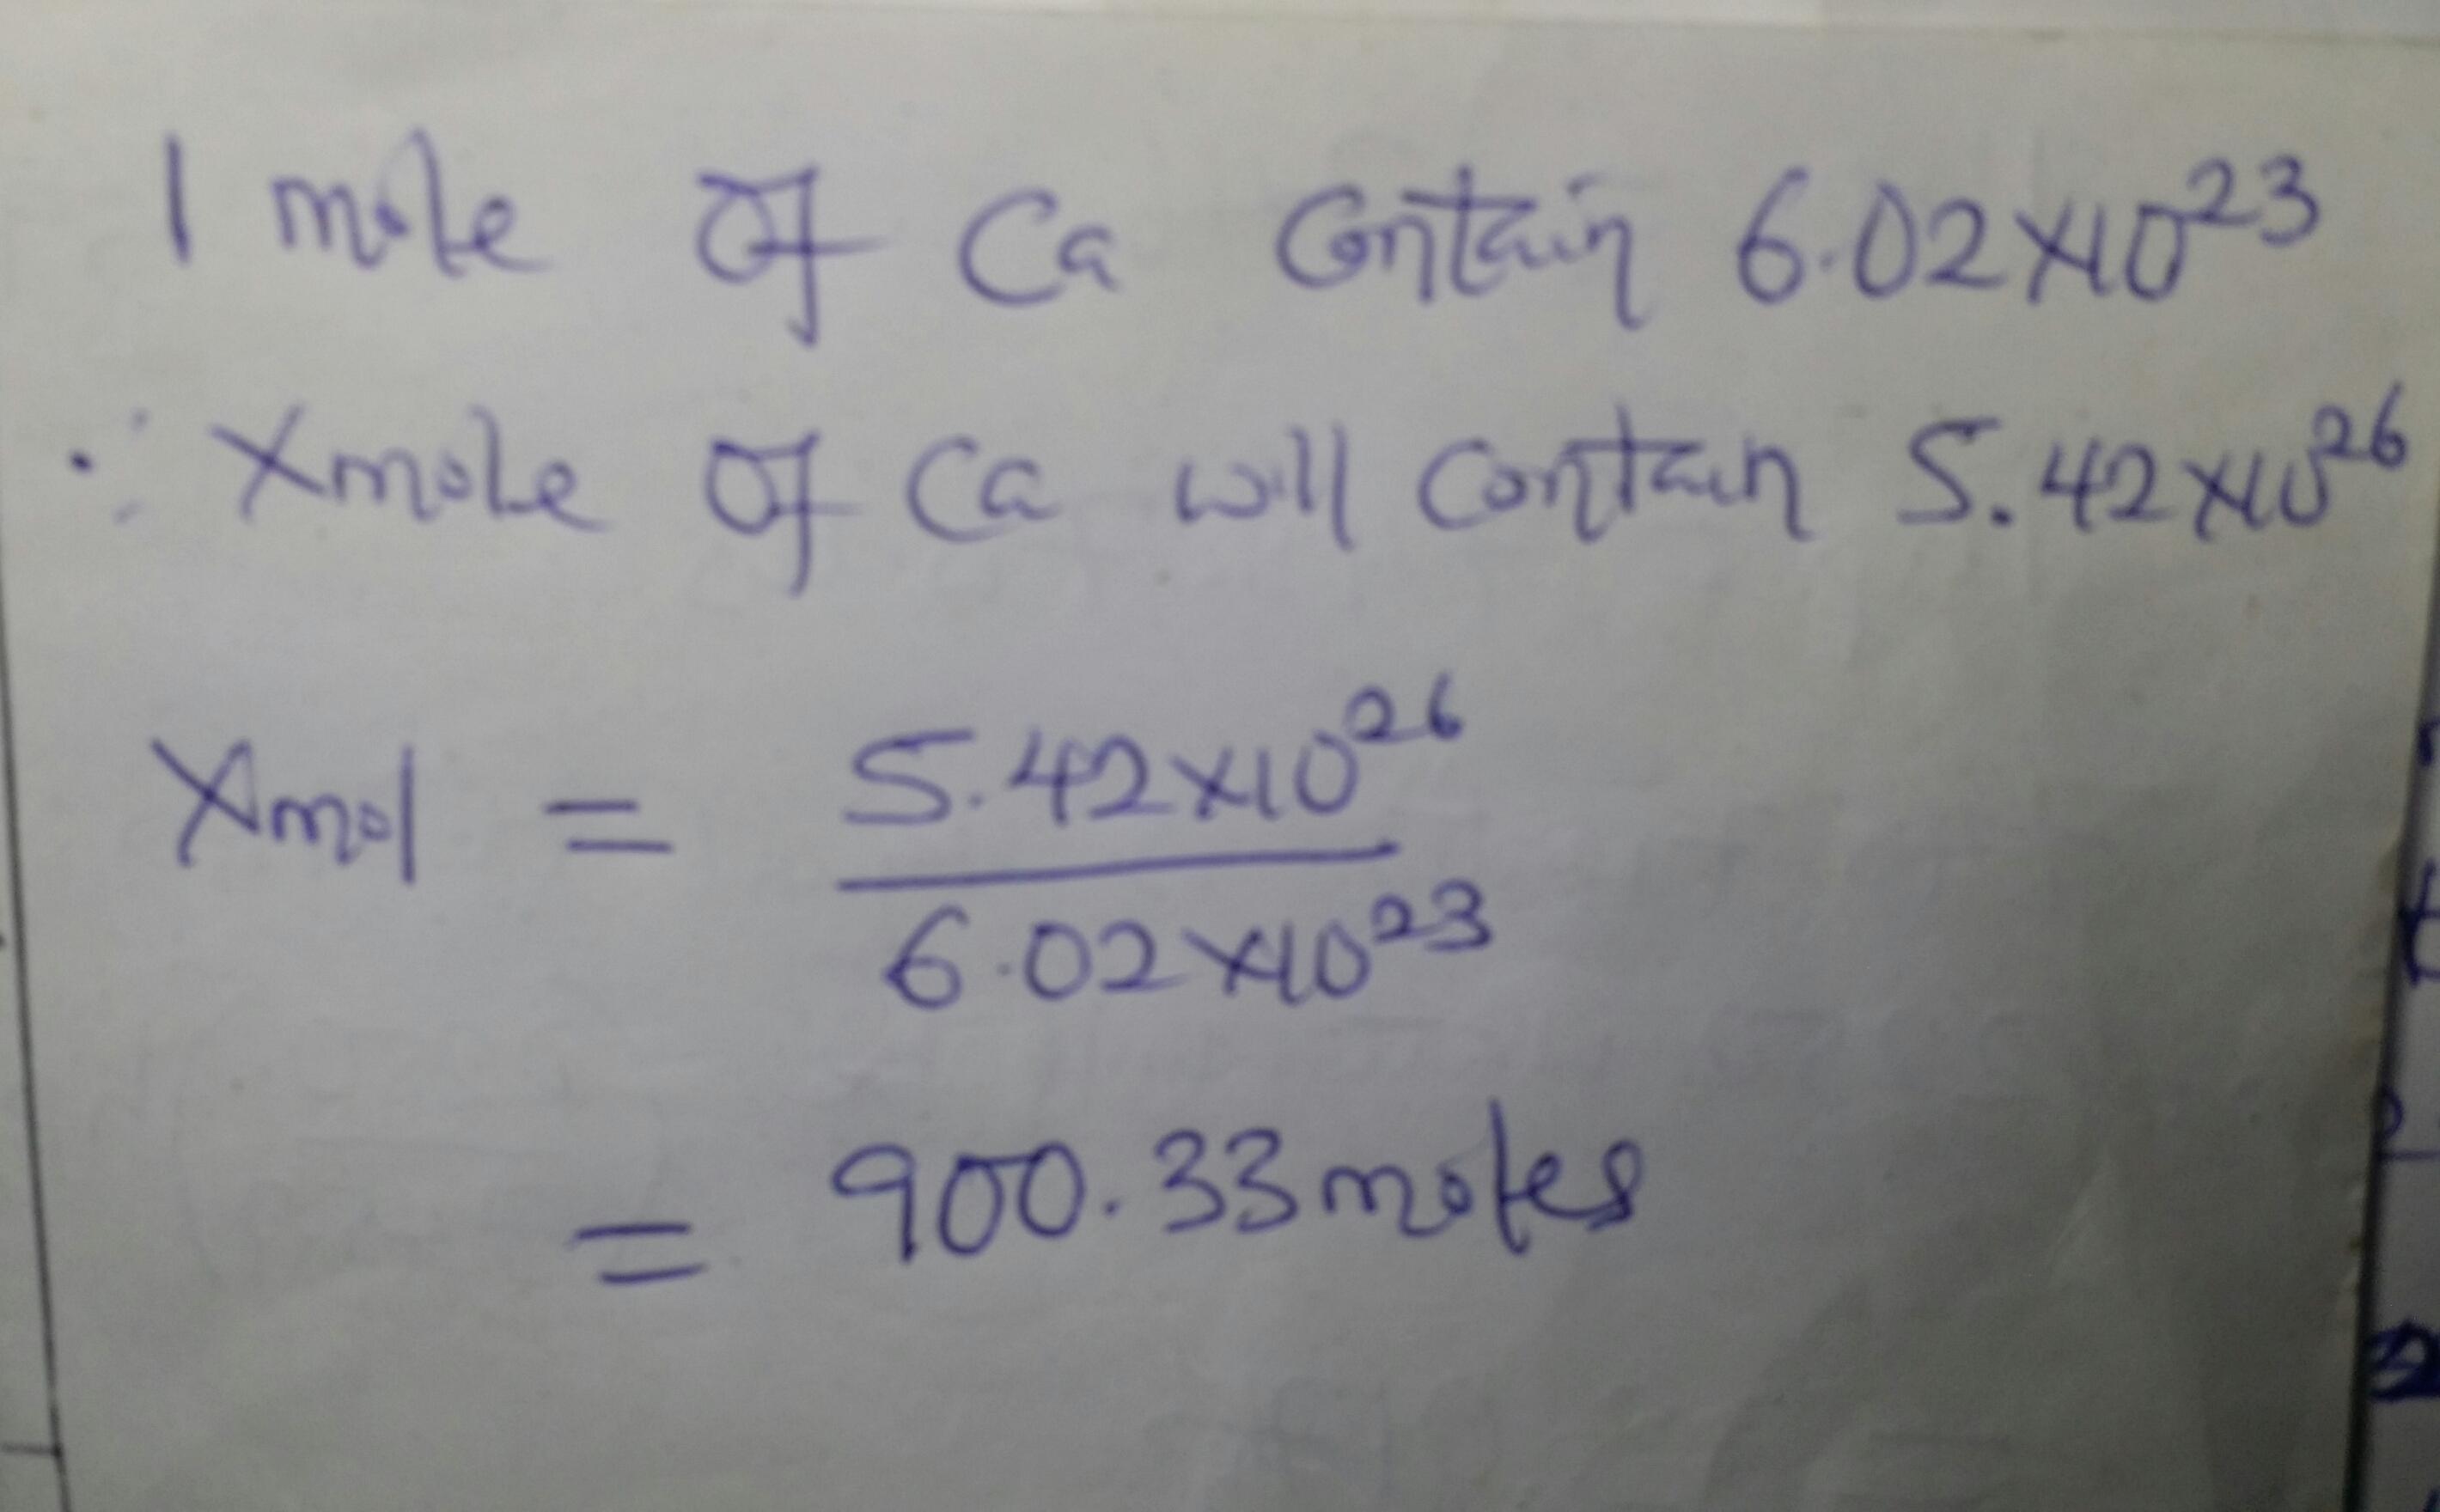 1 mole of Ca Contain 6.02×10²³
∴ Xmole of Ca will contain 5.42×10²⁶
Xmol = 5.42×10²⁶
6.02×10²³
= 900.33moles